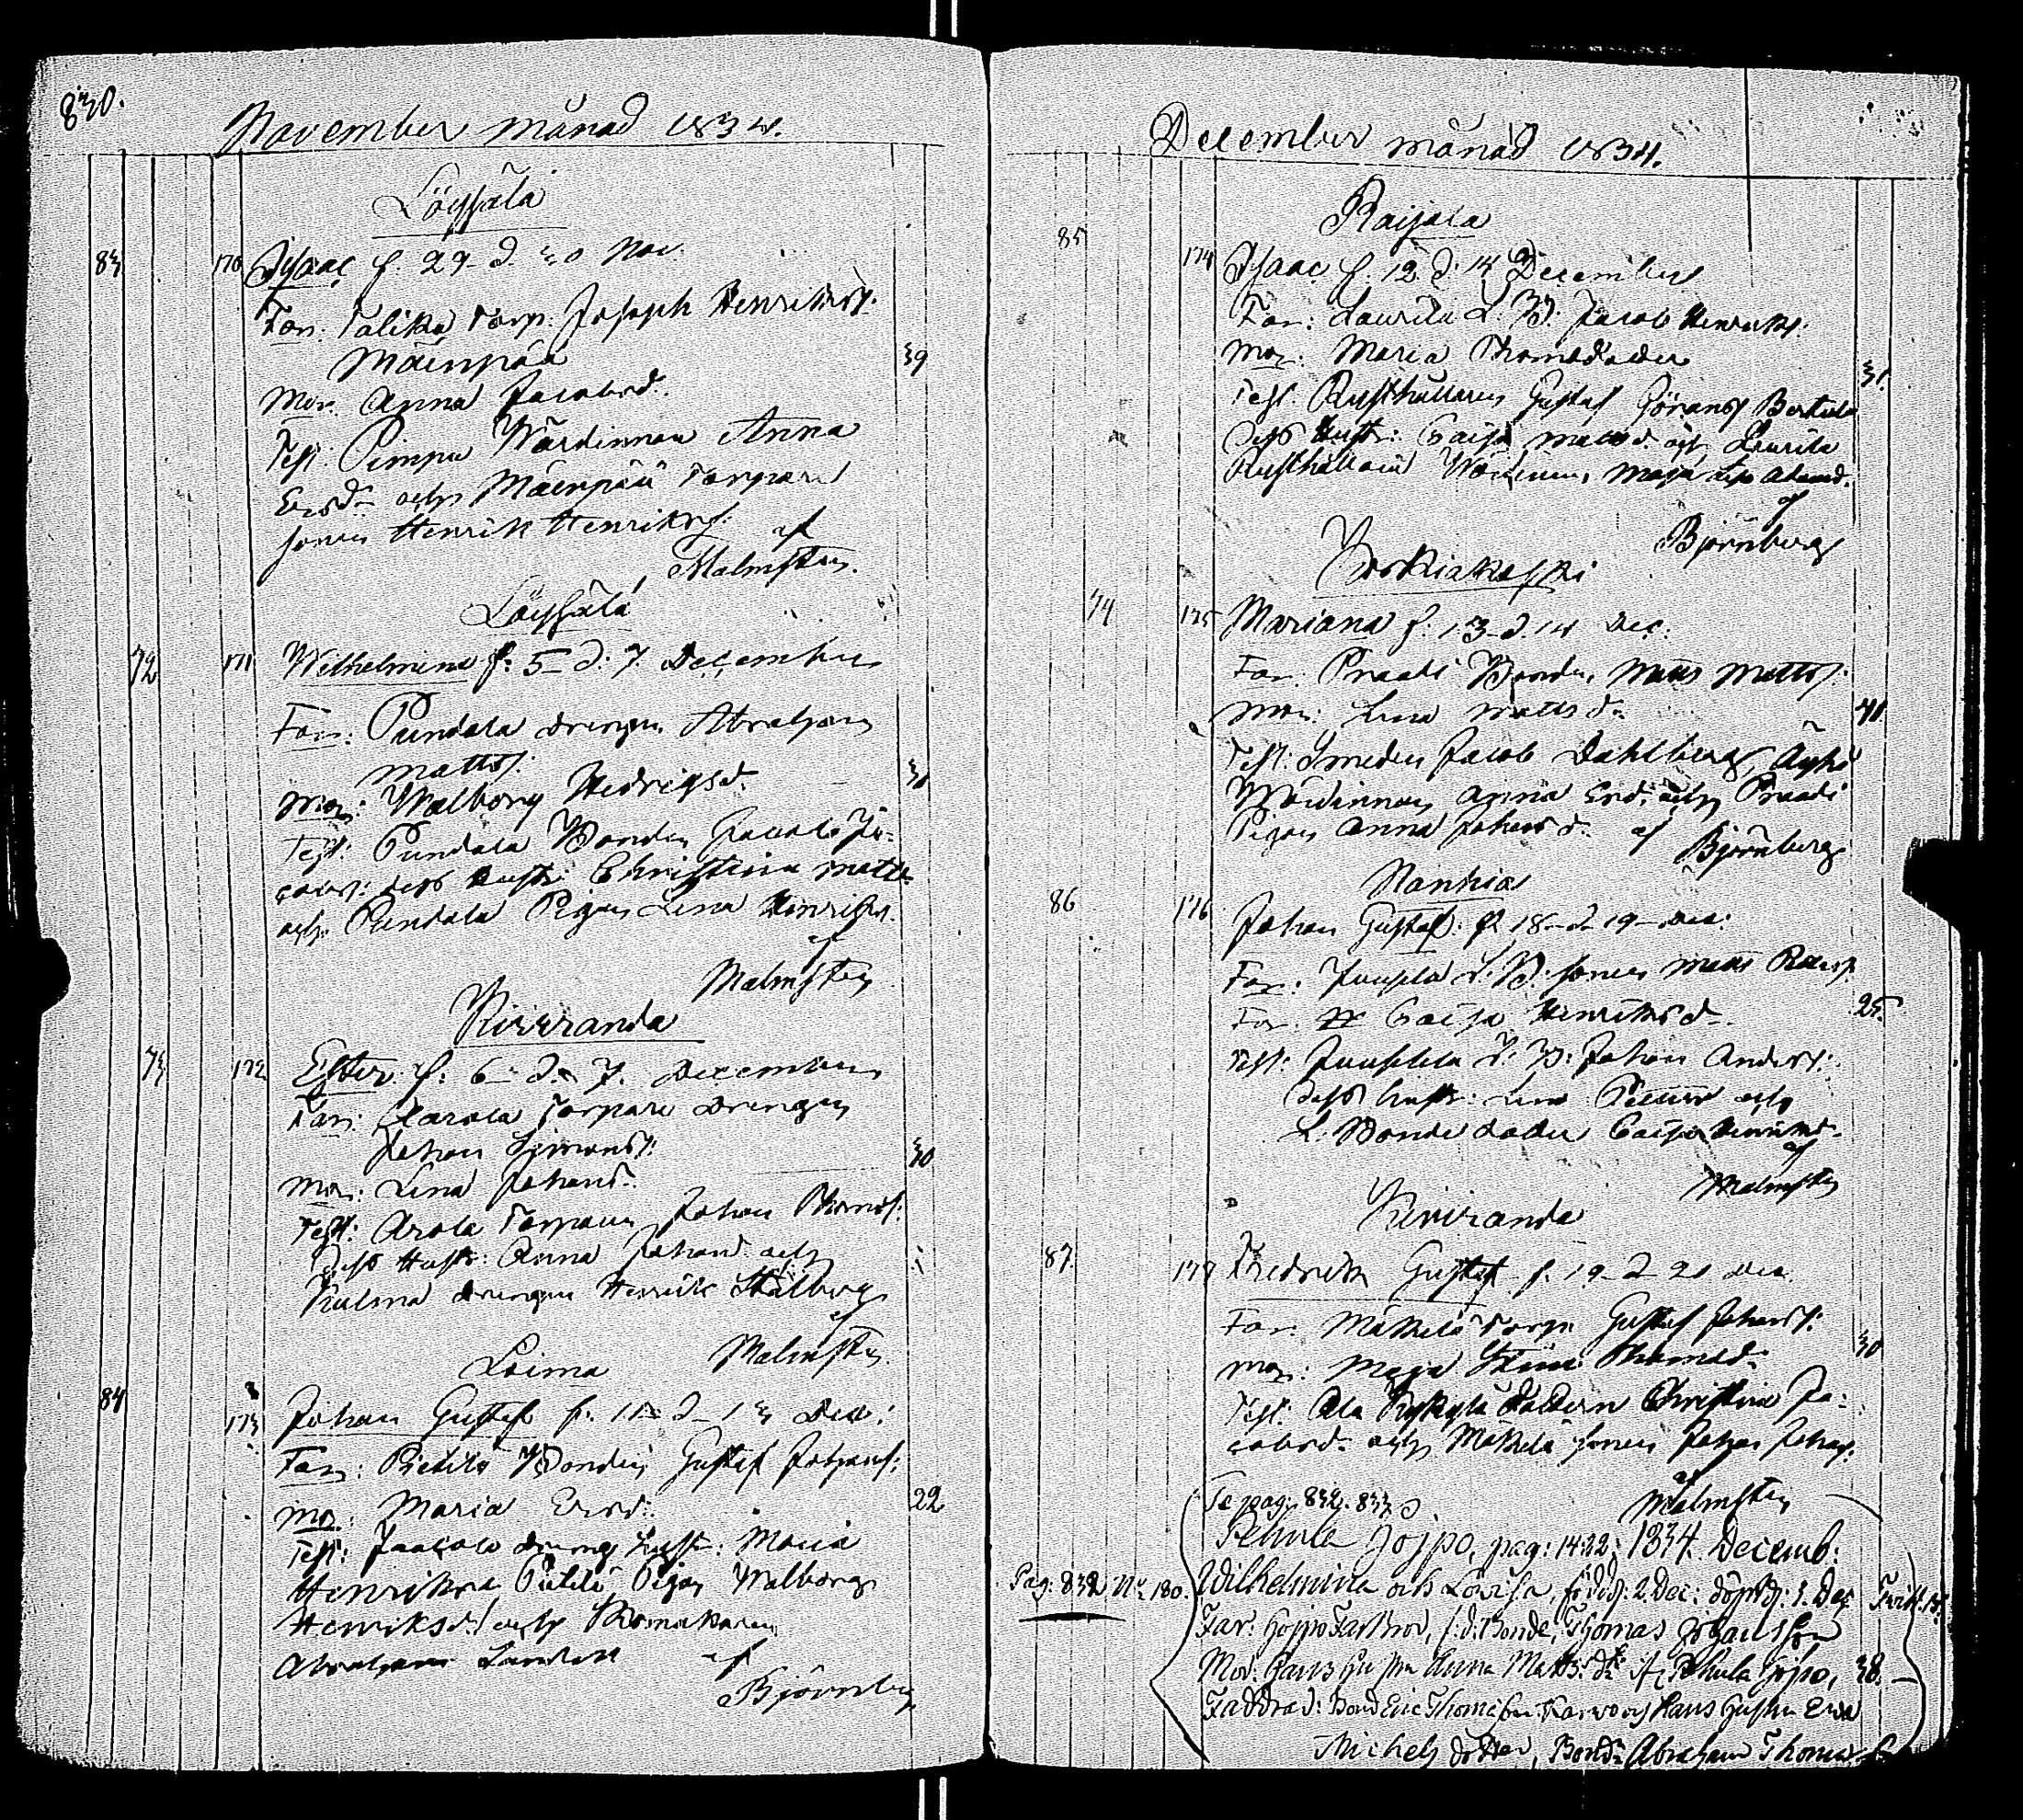 830.
November månad 1834.
Löyssälä
83 170 Isaac f. 29 d. 30 Nov.
Far: Talika Torp. Joseph Henrikss:
Mäenpää 39
Mor: Anna Jacobsd.
Test: Pimpu Wärdinnan Anna
Ersd. och Mäenpää Torpare
sonen Henrik Henrikss: af
Malmsten.
Löyssälä
72 171 Wilhelmina f: 5 d: 7 December
Far: Pundala drengen Abraham
Matts:
Mor: Walborg Hedrigsd. 31
Test: Pundala Bonden Jacob Ja-
cobs: dess hustr: Christina Matts
och Pundala Pigan Lena Henriks.
af
Malmsten
Kiviranda
73 172 Ester f: 6 d. 7. December
Far: Aarola Torpare Drengen
Johan Simonss: 30
Mor: Lena Johansd.
Test: Arola Torparen Johan Thomss:
dess Hustr: Anna Johansd. och
Kulma drengen Henrik Stålberg
af
Malmsten
Loima
84 173 Johan Gustaf f. 11 d 13 Dec:
Far: Pietilä Bonden Gustaf Johans:
Mor: Maria Ersd: 22
Test: Jaacola dreng hustr: Maria
Henriksd. Pietilä Pigan Walborg
Henriksd: och Kronokaren
Abraham
af
Björnberg
December månad 1834.
Raijala
85 174 Isaac f. 12 d. 14 December
Far: Laurila L. B: Jacob Henriks:
Mor: Maria Thomædotter 31.
Test: Rusthållaren Gustaf Görans Bertula
dess Hustr: Caisa Mattsd och Laurila
Rusthållare Wärdinnan Maja
af
Björnberg
74 175 Mariana f. 13 d. 14 Dec:
Far: Praati Bonden Matts Matts:
Mor: Lena Mattsd. 41
Test: Smeden Jacob Dahlberg, Äyhö
Wärdinnan Anna Ersd. och Praati
Pigan Anna Johansd. af
Björnberg
Nanhia
86 176 Johan Gustaf: f. 18 d 19 Dec:
Far: L. B: sonen Matts
Caisa Henriksd. 25.
Test: L. B: Johan Anderss:
dess hustr: Lena och
L. Bonde dotter Caisa Henriksd.
af
Malmsten
Kiviranda
87. 177 Fredrik Gustaf f. 19 d 21 Dec.
Far: Mäkelä Torp. Gustaf Johanss:
Mor: Maja Stina Thomasd. 30
Test: Ala Kykylä Dottern Christina Ja-
cobsd. och Mäkelä sonen Johan Johans:
af
Malmsten
Se pag: 832. 833
Pehula Jojpo, pag: 1422; 1834. Decemb:
Pag: 832 N: 180. Wilhelmina och Lovisa, född: 2. Dec: döpt d: 3. Dec
Far: Jojpo Farbrod, f.d. Bonde, Thomas Johansson
Mor: Hans Hustru Anna Matts: dr: ifr. Pehula Jojpo, 38.
Faddrad: Bond Eric Thomæson Karwo och Hans Hustru Ewa
Michels dotter, Bondn Abraham Thomas